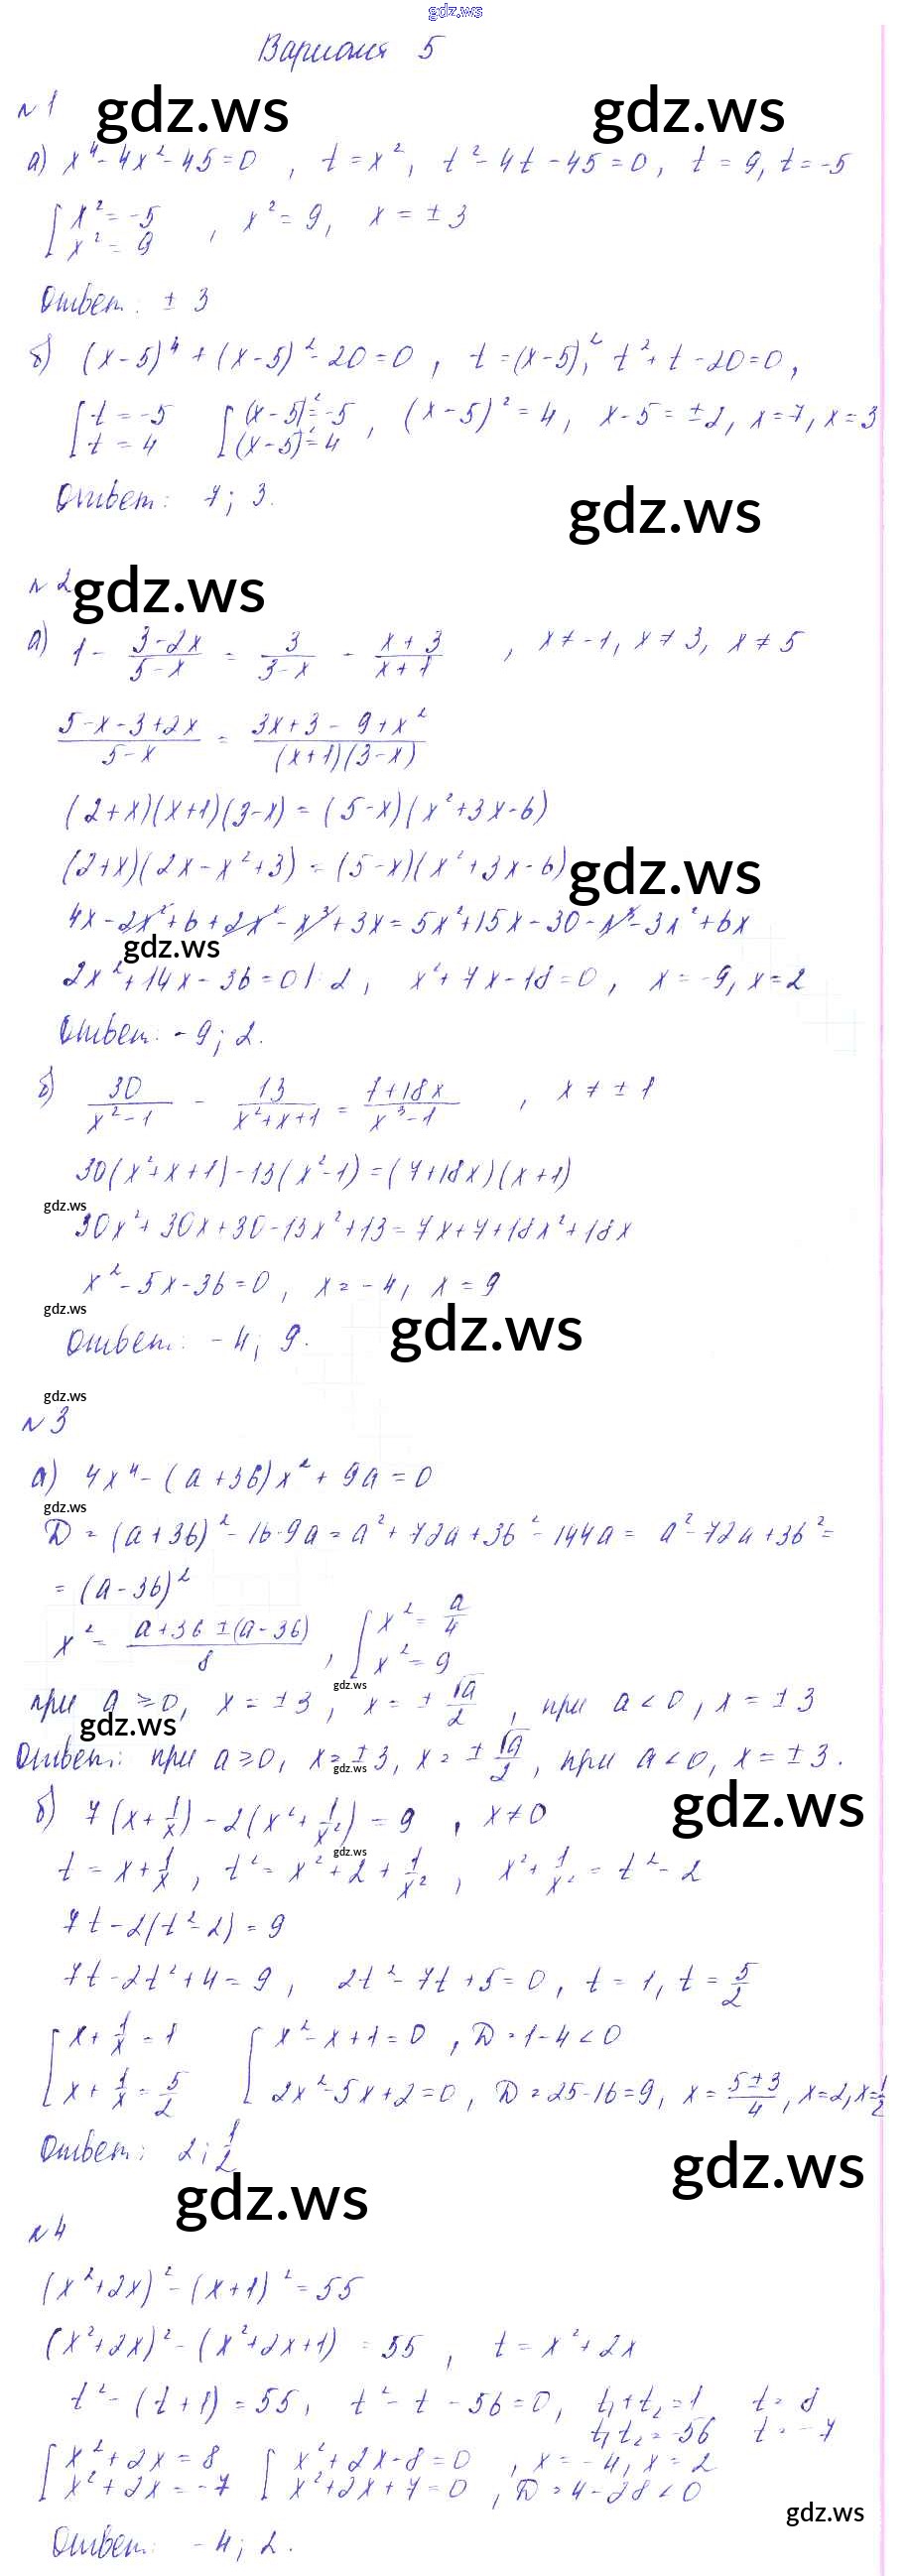 gdz.ws
Вариант 5
№1 gdz.ws gdz.ws
а) x⁴ - 4x² - 45 = 0 , t = x², t² - 4t - 45 = 0, t = 9, t = -5
[ x² = -5
x² = 9 , x² = 9, x = ± 3
Ответ: ± 3
б) (x-5)⁴ + (x-5)² - 20 = 0 , t = (x-5)², t² + t - 20 = 0,
[ t = -5 [ (x-5)² = -5
t = 4 (x-5)² = 4 , (x-5)² = 4, x-5 = ±2, x = 7, x = 3
Ответ: 7; 3.
gdz.ws
№2 gdz.ws
а) 1 - (3-2x)/(5-x) = 3/(3-x) - (x+3)/(x+1) , x ≠ -1, x ≠ 3, x ≠ 5
(5-x-3+2x)/(5-x) = (3x+3-9+x²)/((x+1)(3-x))
(2+x)(x+1)(3-x) = (5-x)(x²+3x-6)
(2+x)(2x-x²+3) = (5-x)(x²+3x-6) gdz.ws
4x-2x²+6+2x²-x³+3x = 5x²+15x-30-x³-3x²+6x
gdz.ws
2x²+14x-36=0 |:2 , x²+7x-18=0, x = -9, x = 2
Ответ: -9; 2.
б) 30/(x²-1) - 13/(x²+x+1) = (7+18x)/(x³-1) , x ≠ ± 1
30(x²+x+1)-13(x²-1) = (7+18x)(x+1)
gdz.ws
30x²+30x+30-13x²+13 = 7x+7+18x²+18x
x²-5x-36=0 , x = -4, x = 9
gdz.ws
Ответ: -4; 9. gdz.ws
gdz.ws
№3
а) 4x⁴-(a+36)x²+9a=0
gdz.ws
D = (a+36)²-16·9a = a²+72a+36²-144a = a²-72a+36² =
= (a-36)²
x² = (a+36±(a-36))/8 , [ x² = a/4
x² = 9
gdz.ws
при a ≥ 0, x = ±3, x = ± √a/2 , при a < 0, x = ± 3
gdz.ws
Ответ: при a ≥ 0, x = ± 3, x = ± √a/2 , при a < 0, x = ± 3.
gdz.ws
gdz.ws
б) 7(x+1/x)-2(x²+1/x²) = 9 , x ≠ 0
gdz.ws
t = x+1/x , t² = x²+2+1/x² , x²+1/x² = t²-2
7t-2(t²-2) = 9
7t-2t²+4 = 9 , 2t²-7t+5=0, t = 1, t = 5/2
[ x+1/x = 1 [ x²-x+1=0 , D = 1-4 < 0
x+1/x = 5/2 2x²-5x+2=0 , D = 25-16=9, x = (5±3)/4 , x=2, x=1/2
Ответ: 2; 1/2
gdz.ws
gdz.ws
№4
(x²+2x)²-(x+1)²=55
(x²+2x)²-(x²+2x+1) = 55 , t = x²+2x
t²-(t+1) = 55, t²-t-56=0, t₁+t₂=1 t = 8
t₁t₂=-56 t = -7
[ x²+2x = 8 [ x²+2x-8=0 , x = -4, x = 2
x²+2x = -7 x²+2x+7=0 , D = 4-28 < 0
gdz.ws
Ответ: -4; 2.